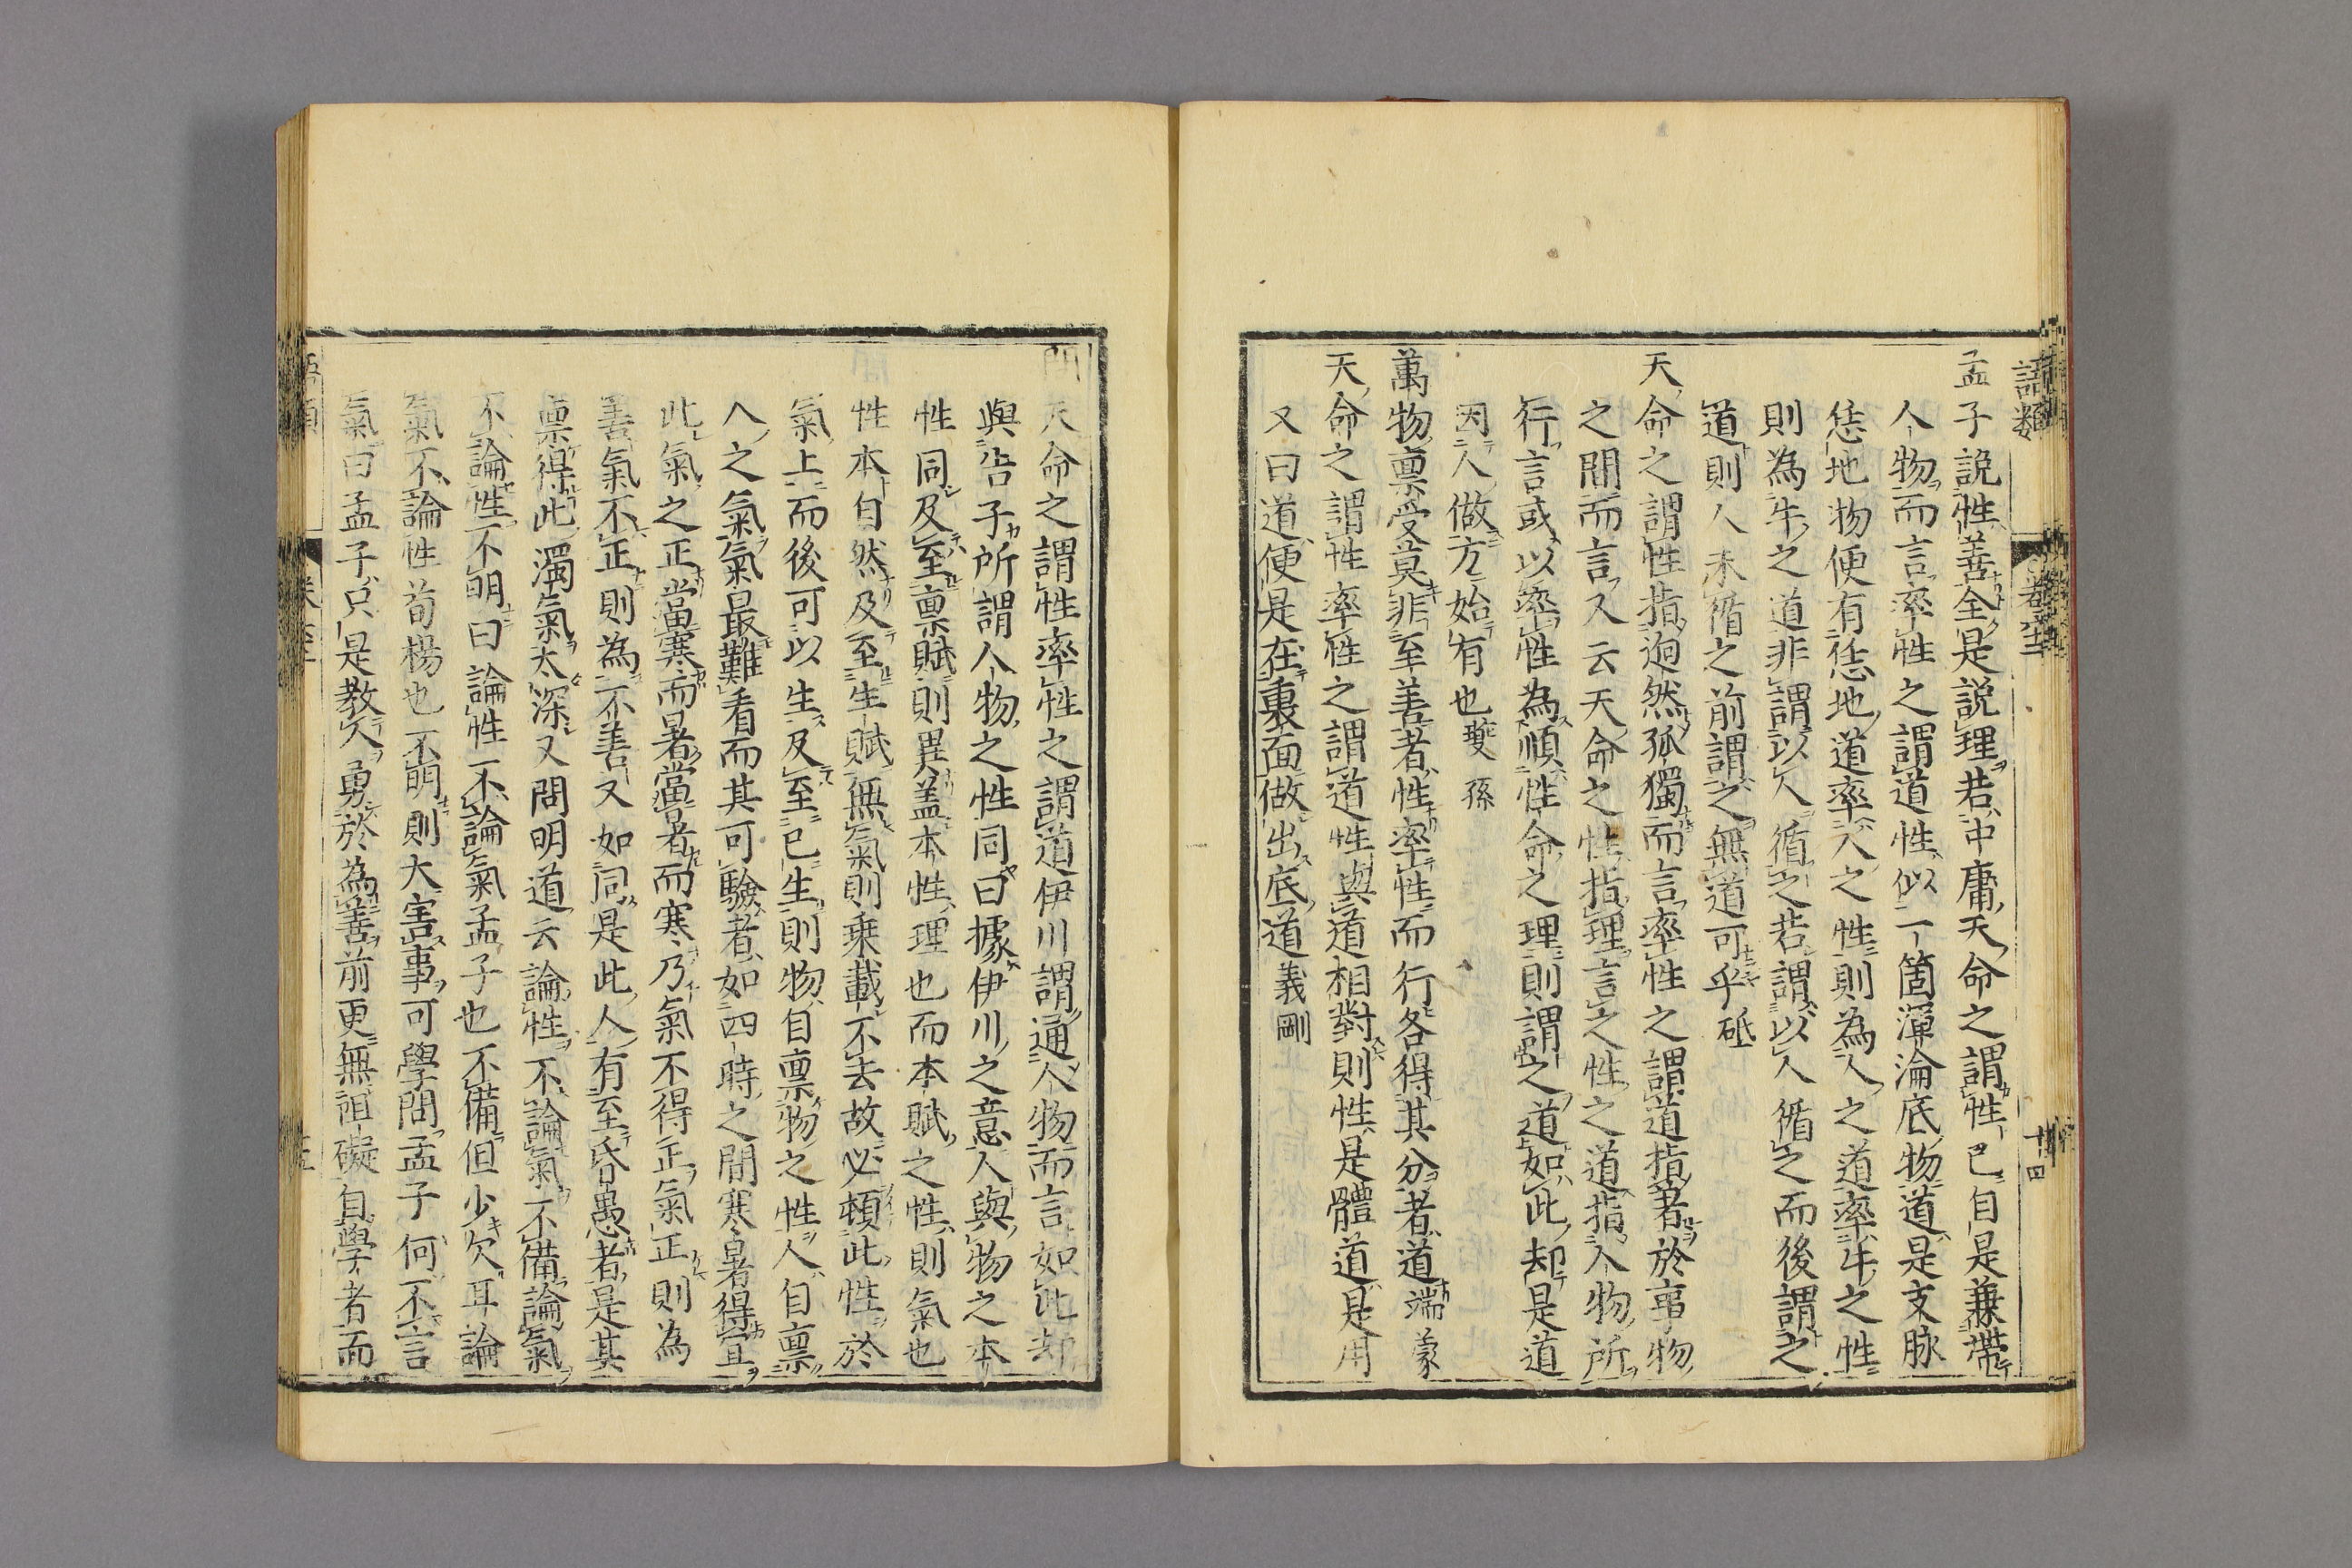 語類
卷六十二
十四
孟子說性善全是說理若中庸天命之謂性已自是兼帶
人物而言率性之謂道性似一箇渾淪底物道是支脉
恁地物便有恁地道率人之性則為人之道率牛之性
則為牛之道非謂以人循之若謂以人循之而後謂之
道則人未循之前謂之無道可乎砥
天命之謂性指迥然孤獨而言率性之謂道指著於事物
之間而言又云天命之性指理言之性之道指人物所
行言或以率性為順性命之理則謂之道如此却是道
因人做方始有也夔孫
萬物稟受莫非至善者性率性而行各得其分者道端蒙
天命之謂性率性之謂道性與道相對則性是體道是用
又曰道便是在裏面做出底道義剛
問天命之謂性率性之謂道伊川謂通人物而言如此却
與告子所謂人物之性同曰據伊川之意人與物之本
性同及至稟賦則異盖本性理也而本賦之性則氣也
性本自然及至生賦無氣則乗載不去故必頓此性於
氣上而後可以生及至已生則物自稟物之性人自稟
人之氣氣最難看而其可驗者如四時之間寒暑得宜
此氣之正當寒而暑當暑而寒乃氣不得正氣正則為
善氣不正則為不善又如同是此人有至昏愚者是其
稟得此濁氣太深又問明道云論性不論氣不備論氣
不論性不明曰論性不論氣孟子也不備但少欠耳論
氣不論性荀楊也不明則大害事可學問孟子何不言
氣曰孟子只是教人勇於為善前更無詛礙自學者而
語類